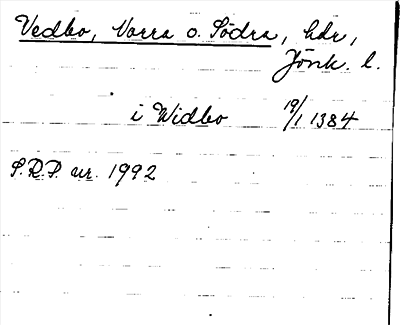 Vedbo, Norra o. Södra, hdr,
Jönk. l.
i Widbo 19/1 1384
S.R.P. nr. 1992